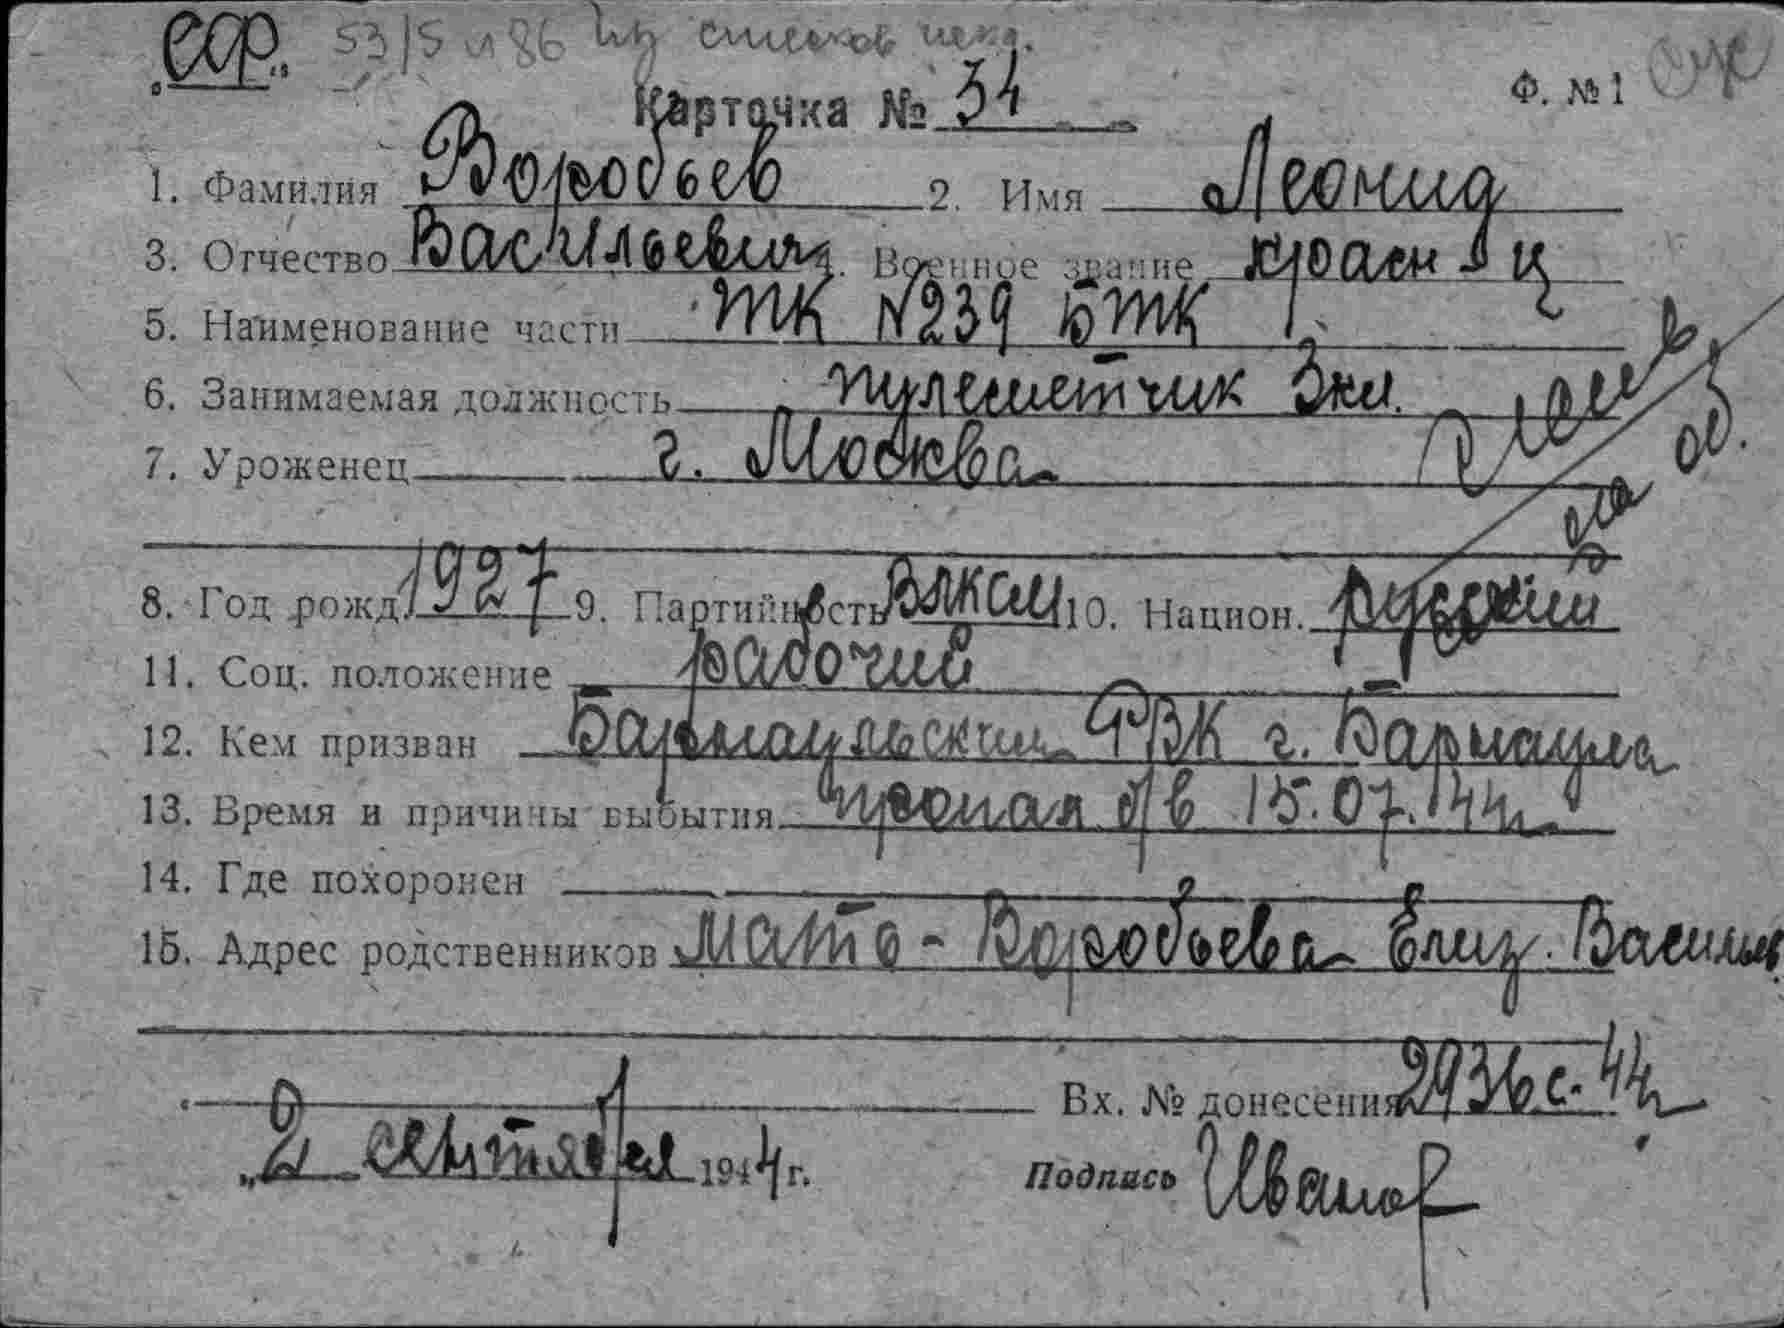 53/5 и 86 из списков
Карточка № 34 Ф. № 1
1. Фамилия Воробьев 2. Имя Леонид
3. Отчество Васильевич 4. Военное звание красн-ц
5. Наименование части ТК №239 БТК
6. Занимаемая должность пулеметчик
7. Уроженец г. Москва
8. Год рожд. 1927 9. Партийность ВЛКСМ 10. Национ. русский
11. Соц. положение рабочий
12. Кем призван Барнаульским РВК г. Барнаула
13. Время и причины выбытия пропал б/в 15.07.44г.
14. Где похоронен
15. Адрес родственников мать - Воробьева Елиз. Васильев.
Вх. № донесения 2936с. 44г
„2 сентября 1944 г. Подпись Иванов